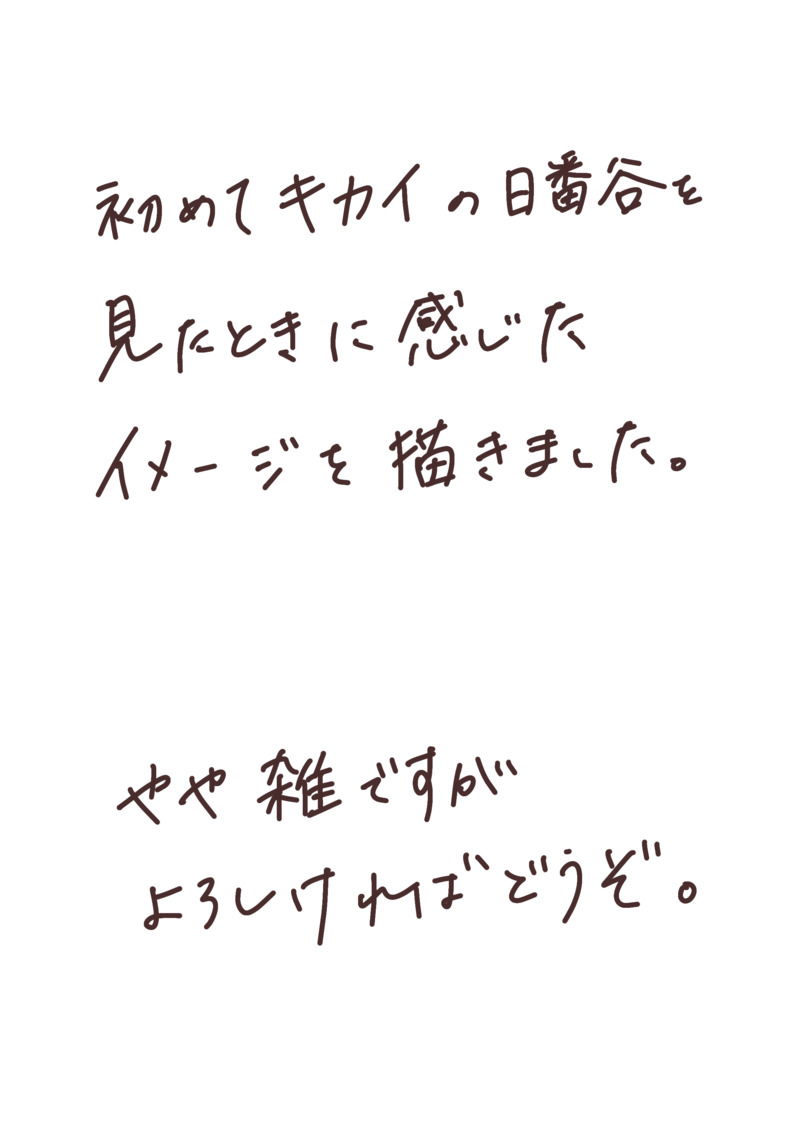 初めてキカイの日番谷を
見たときに感じた
イメージを描きました。
やや雑ですが
よろしければどうぞ。